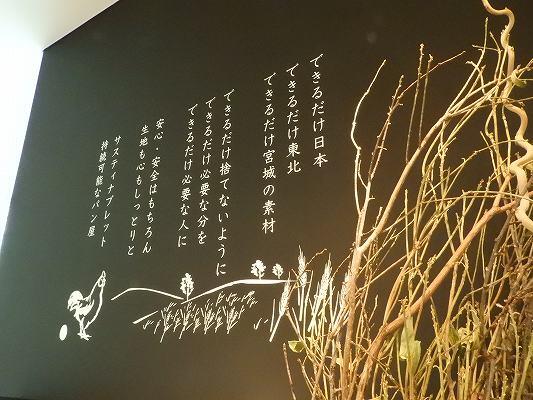 できるだけ日本
できるだけ東北
できるだけ宮城の素材
できるだけ捨てないように
できるだけ必要な分を
できるだけ必要な人に
安心・安全はもちろん
生地も心もしっとりと
サスティナブレット
持続可能なパン屋